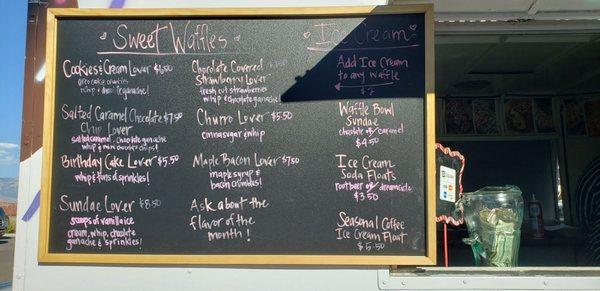 Sweet Waffles
Cookies & Cream Lover
oreo cookie crumbles
whip & chocolate ganache!
Salted Caramel Chocolate $7.50
Chip Lover
salted caramel, chocolate ganache
whip & mini chocolate chips!
Birthday Cake Lover $5.50
whip & tons of sprinkles!
Sundae Lover $8.50
scoops of vanilla ice
cream, whip, chocolate
ganache & sprinkles!
Chocolate Covered
Strawberry Lover
fresh cut strawberries
whip & chocolate ganache
Churro Lover $5.50
cinna sugar & whip
Maple Bacon Lover $7.50
maple syrup &
bacon crumbles!
Ask about the
flavor of the
month!
Ice Cream
Add Ice Cream
to any Waffle
Waffle Bowl
Sundae
chocolate or caramel
$4.50
Ice Cream
Soda Floats
root beer or dreamcicle
$3.50
Seasonal Coffee
Ice Cream Float
$5.50